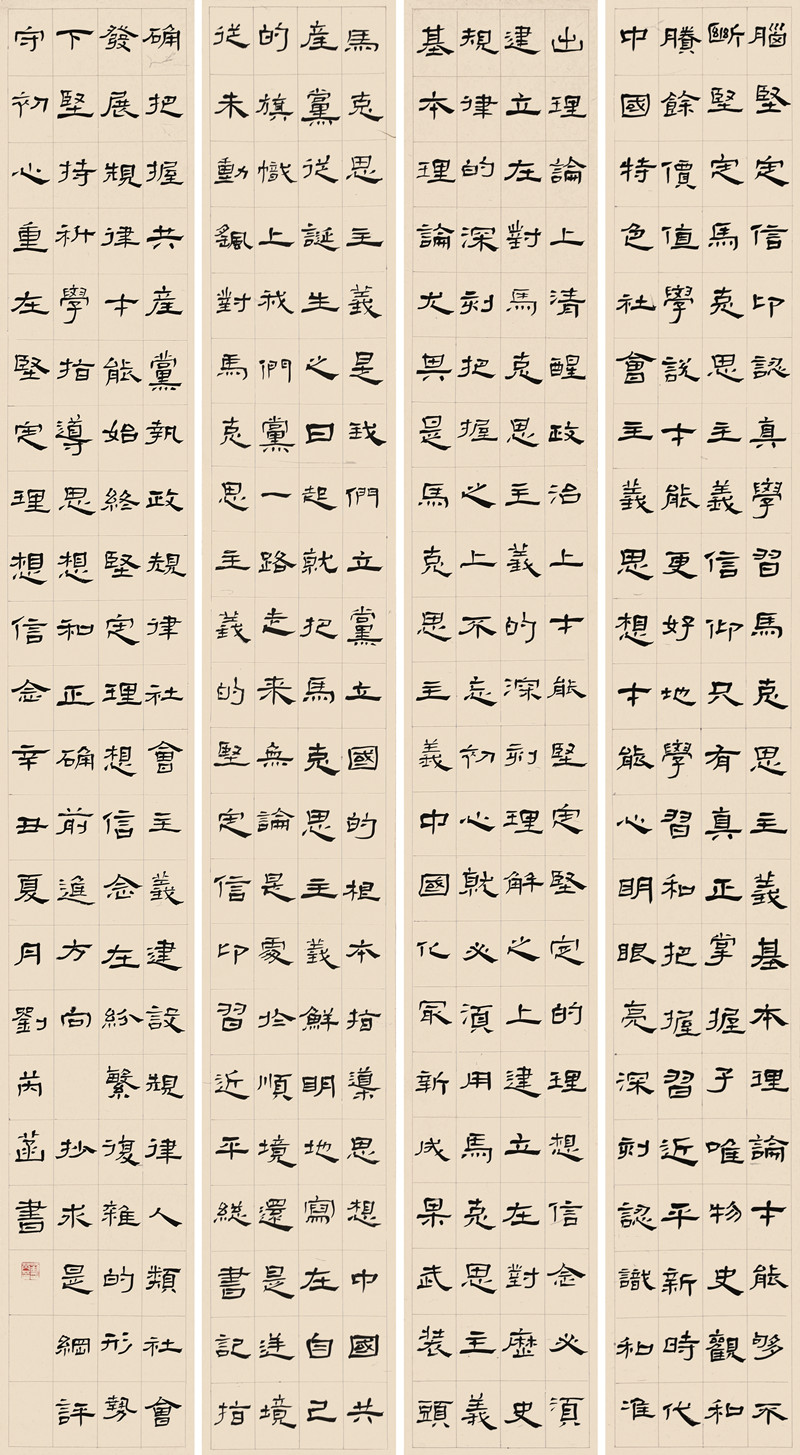 馬克思主義是我們立黨立國的根本指導思想中國共
產黨從誕生之日起就把馬克思主義鮮明地寫在自己
的旗幟上我們黨一路走來無論是處於順境還是逆境
從未動搖對馬克思主義的堅定信卬習近平總書記指
出理論上清醒政治上才能堅定堅定的理想信念必須
建立在對馬克思主義的深刻理解之上建立在對歷史
規律的深刻把握之上不忘初心就必須用馬克思主義
基本理論尤其是馬克思主義中國化最新成果武裝頭
腦堅定信卬認真學習馬克思主義基本理論才能夠不
斷堅定馬克思主義信仰只有真正掌握子唯物史觀和
賸餘價值學說才能更好地學習和把握習近平新時代
中國特色社會主義思想才能心明眼亮深刻認識和准
确把握共產黨執政規律社會主義建設規律人類社會
發展規律才能始終堅定理想信念在紛繁復雜的形勢
下堅持科學指導思想和正确前進方向 抄求是網評
守初心重在堅定理想信念辛丑夏月劉芮菡書